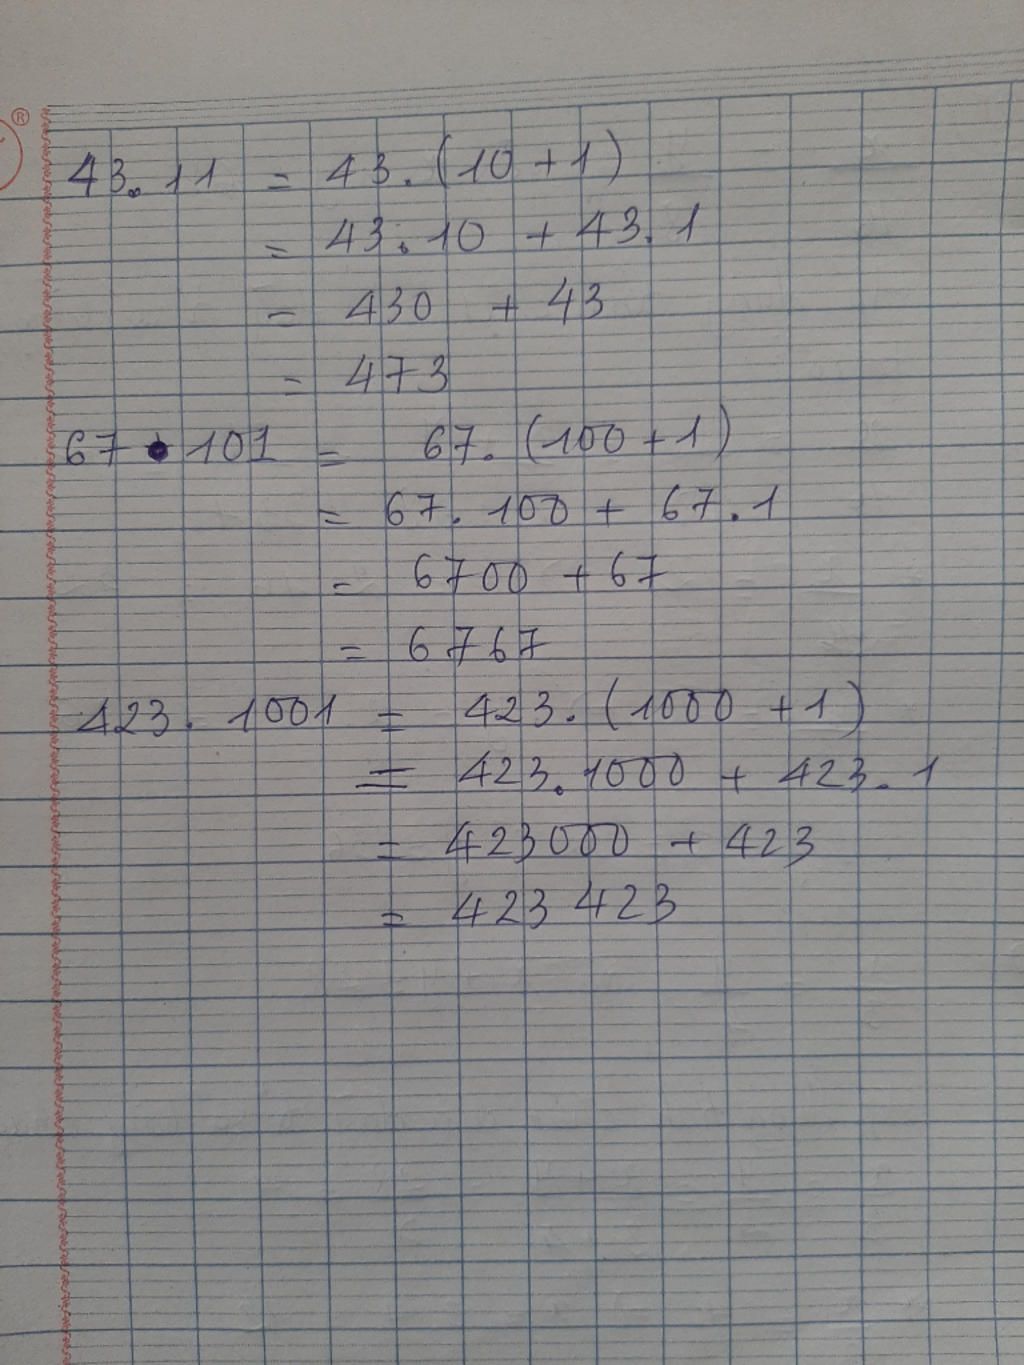 ®
43.11 = 43.(10+1)
= 43.10 + 43.1
= 430 + 43
= 473
67 • 101 = 67.(100+1)
= 67.100 + 67.1
= 6700 + 67
= 6767
423. 1001 = 423.(1000 +1)
= 423.1000 + 423.1
= 423000 + 423
= 423 423